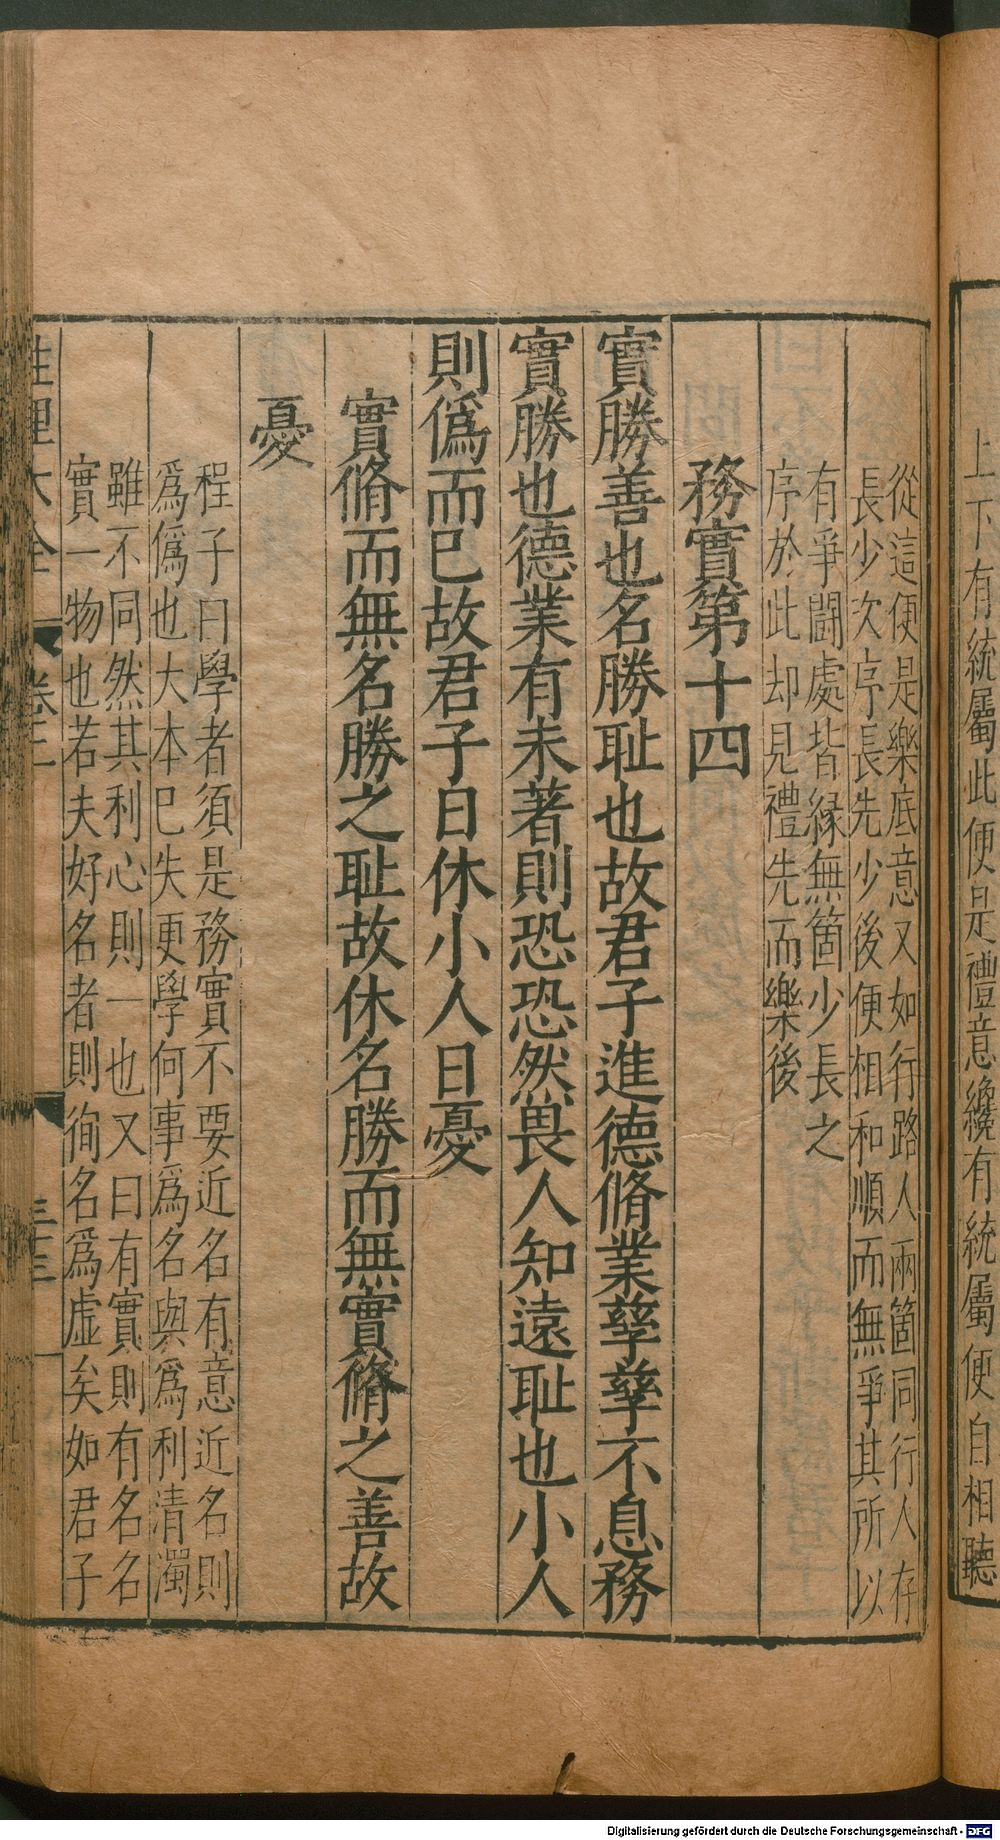 上下有統屬此便是禮意纔有統屬便自相聽
從這便是樂底意又如行路人兩箇同行人存
長少次序長先少後便相和順而無爭其所以
有爭鬪處皆緣無箇少長之
序於此却見禮先而樂後
務實第十四
實勝善也名勝耻也故君子進德脩業孳孳不息務
實勝也德業有未著則恐恐然畏人知遠耻也小人
則僞而已故君子日休小人日憂
實脩而無名勝之耻故休名勝而無實脩之善故
憂
程子曰學者須是務實不要近名有意近名則
爲僞也大本已失更學何事爲名與爲利清濁
雖不同然其利心則一也又曰有實則有名名
實一物也若夫好名者則徇名爲虛矣如君子
性理大全 卷二 三十三
Digitalisierung gefördert durch die Deutsche Forschungsgemeinschaft - DFG